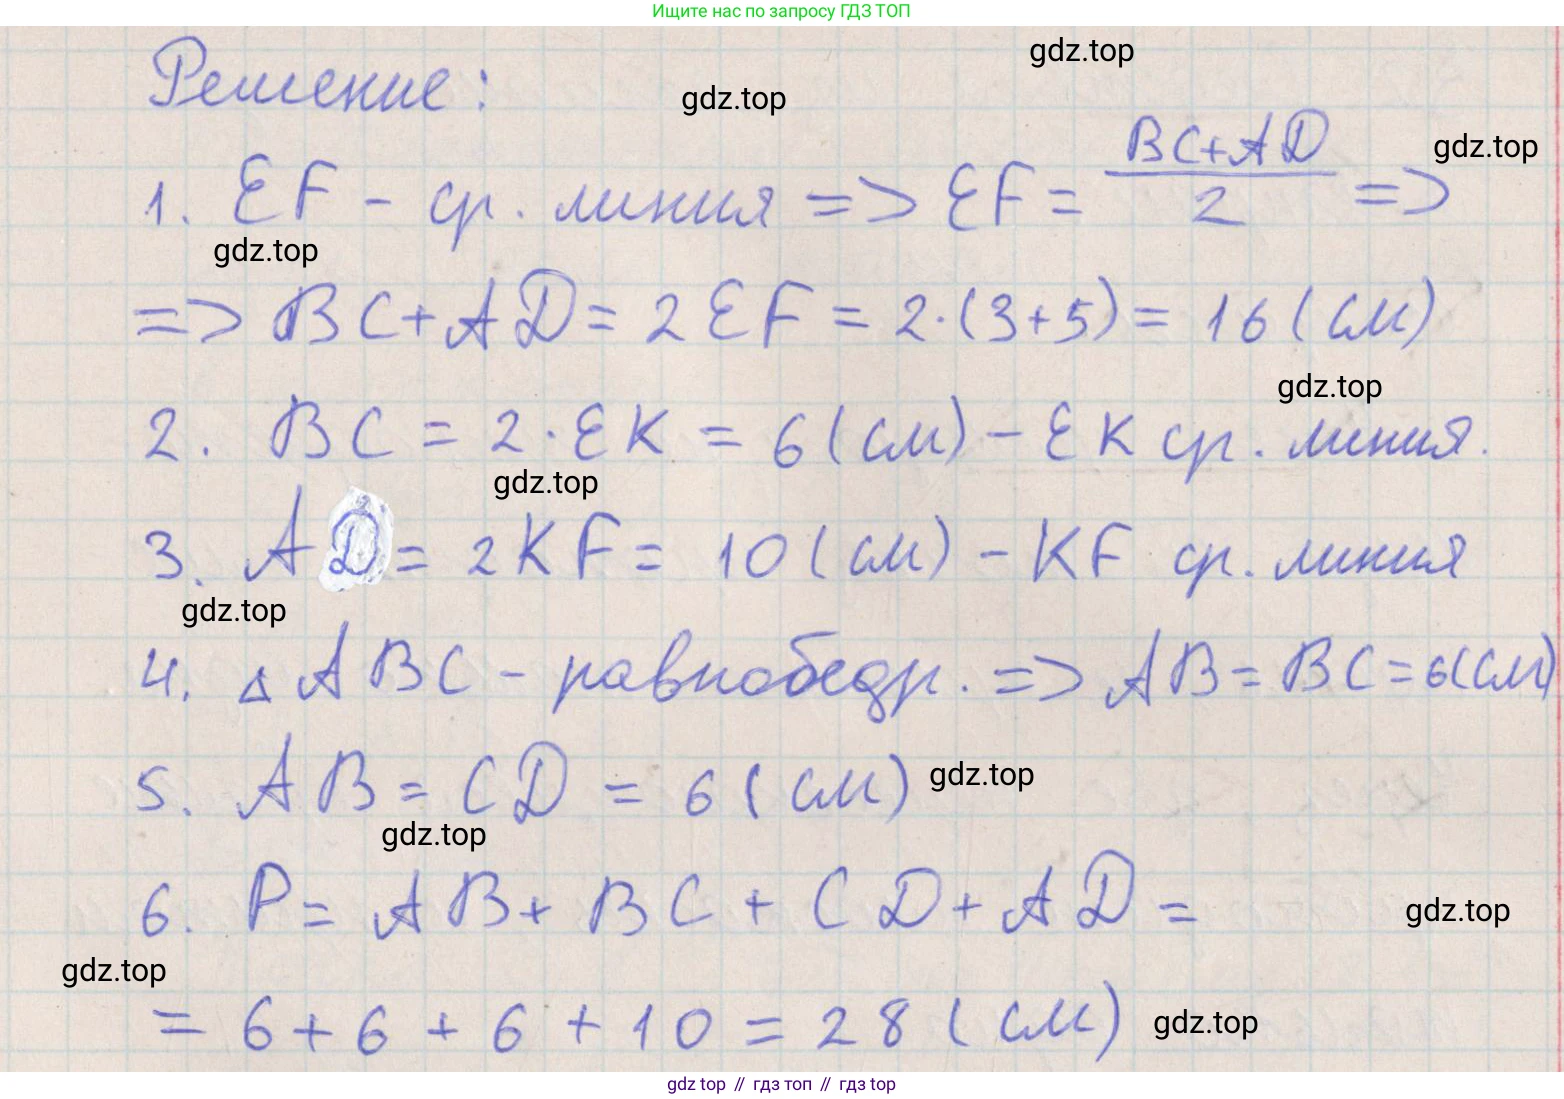 Ищите нас по запросу ГДЗ ТОП
gdz.top
Решение:
gdz.top
gdz.top
1. EF - ср. линия => EF = (BC+AD)/2 =>
gdz.top
=> BC+AD = 2EF = 2·(3+5) = 16 (см)
gdz.top
2. BC = 2·EK = 6 (см) - EK ср. линия.
gdz.top
3. AD = 2KF = 10 (см) - KF ср. линия
gdz.top
4. △ABC - равнобедр. => AB = BC = 6(см)
5. AB = CD = 6 (см)
gdz.top
gdz.top
6. P = AB + BC + CD + AD =
gdz.top
gdz.top
= 6 + 6 + 6 + 10 = 28 (см)
gdz.top
gdz top // гдз топ // гдз top